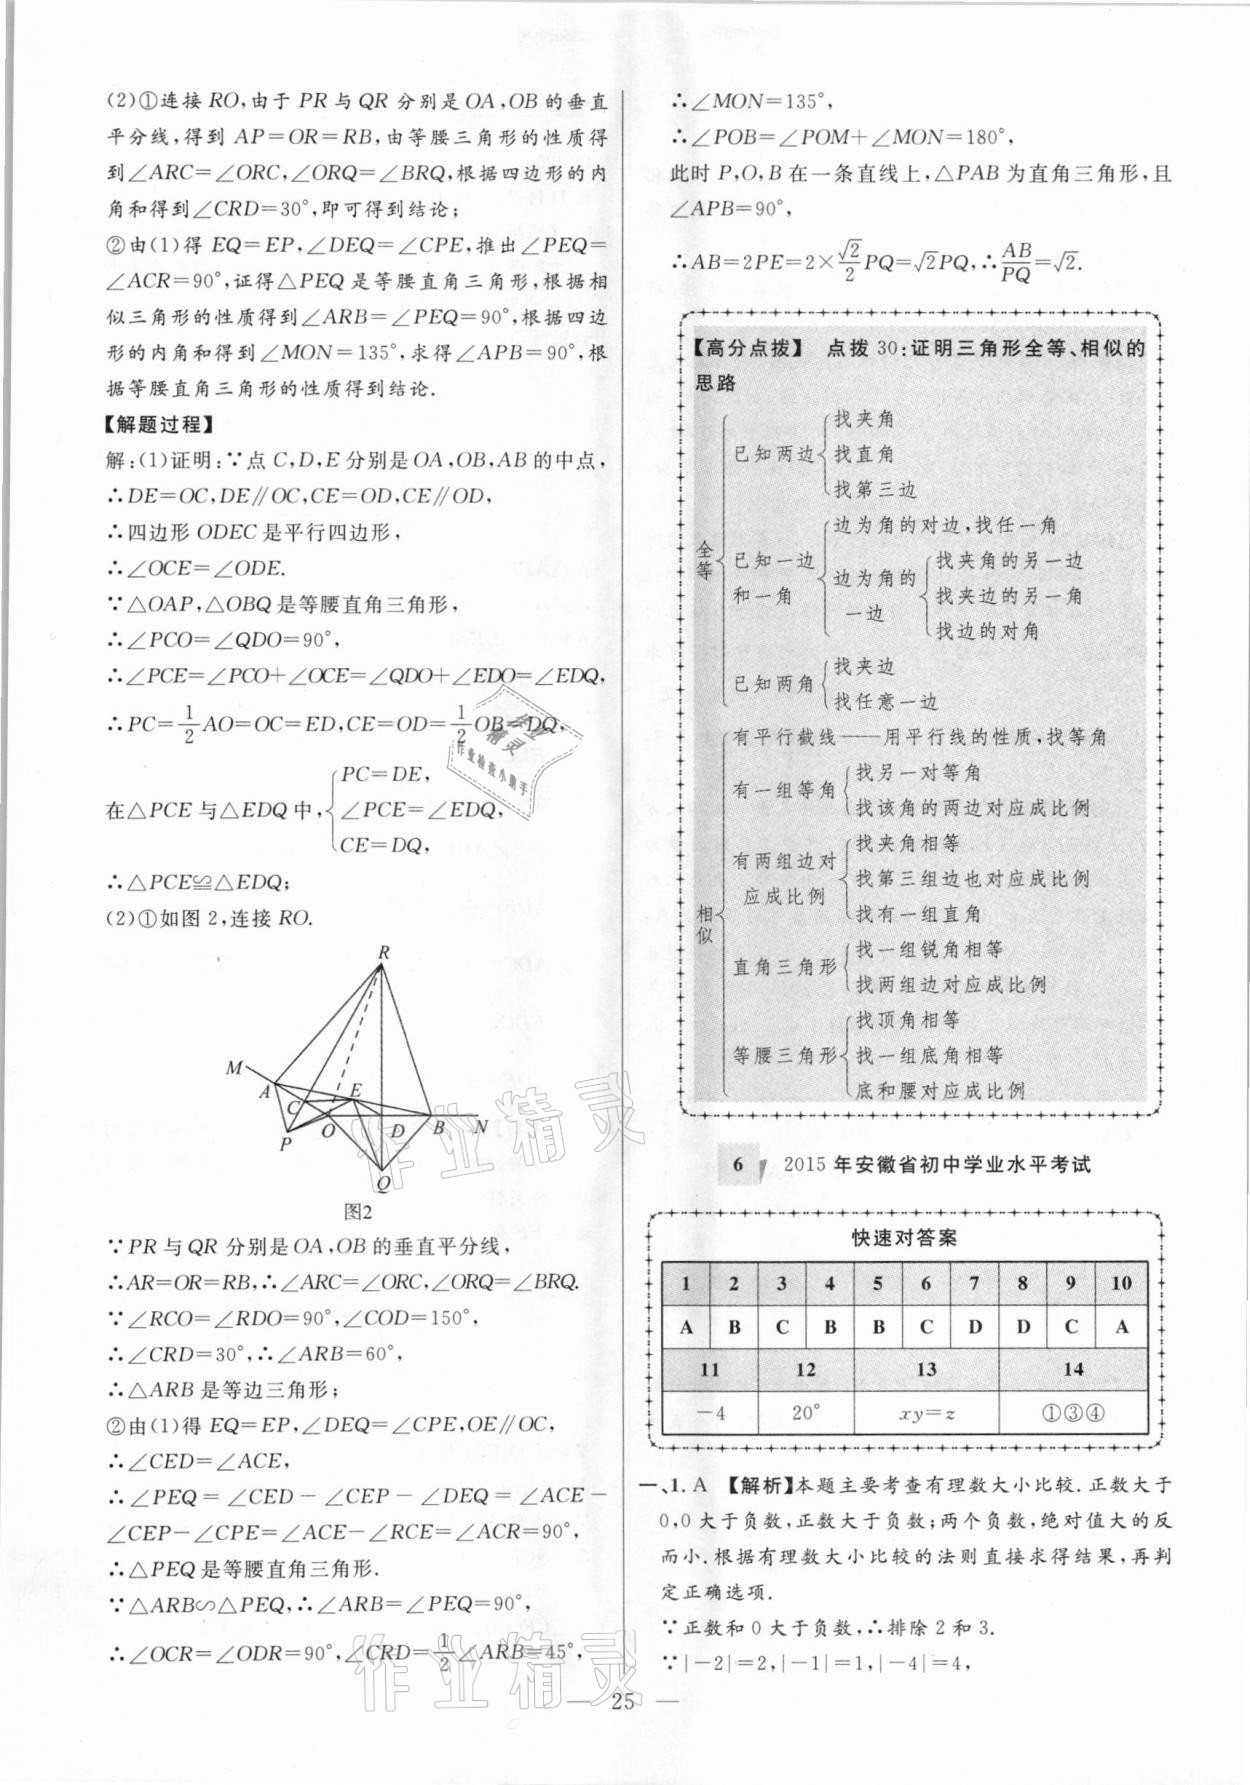 (2)①连接 RO,由于 PR 与 QR 分别是 OA,OB 的垂直
平分线,得到 AP=OR=RB,由等腰三角形的性质得
到∠ARC=∠ORC,∠ORQ=∠BRQ,根据四边形的内
角和得到∠CRD=30°,即可得到结论;
②由(1)得 EQ=EP,∠DEQ=∠CPE,推出∠PEQ=
∠ACR=90°,证得△PEQ 是等腰直角三角形,根据相
似三角形的性质得到∠ARB=∠PEQ=90°,根据四边
形的内角和得到∠MON=135°,求得∠APB=90°,根
据等腰直角三角形的性质得到结论.
【解题过程】
解:(1)证明:∵点 C,D,E 分别是 OA,OB,AB 的中点,
∴DE=OC,DE∥OC,CE=OD,CE∥OD,
∴四边形 ODEC 是平行四边形,
∴∠OCE=∠ODE.
∵△OAP,△OBQ 是等腰直角三角形,
∴∠PCO=∠QDO=90°,
∴∠PCE=∠PCO+∠OCE=∠QDO+∠EDO=∠EDQ,
∴PC=1/2 AO=OC=ED,CE=OD=1/2 OB=DQ,
PC=DE,
在△PCE 与△EDQ 中,∠PCE=∠EDQ,
CE=DQ,
∴△PCE≌△EDQ;
(2)①如图 2,连接 RO.
R
M
A
C
E
P
O
D
B
N
Q
图2
∵PR 与 QR 分别是 OA,OB 的垂直平分线,
∴AR=OR=RB,∴∠ARC=∠ORC,∠ORQ=∠BRQ.
∵∠RCO=∠RDO=90°,∠COD=150°,
∴∠CRD=30°,∴∠ARB=60°,
∴△ARB 是等边三角形;
②由(1)得 EQ=EP,∠DEQ=∠CPE,OE∥OC,
∴∠CED=∠ACE,
∴∠PEQ=∠CED-∠CEP-∠DEQ=∠ACE-
∠CEP-∠CPE=∠ACE-∠RCE=∠ACR=90°,
∴△PEQ 是等腰直角三角形.
∵△ARB∽△PEQ,∴∠ARB=∠PEQ=90°,
∴∠OCR=∠ODR=90°,∠CRD=1/2∠ARB=45°,
∴∠MON=135°,
∴∠POB=∠POM+∠MON=180°,
此时 P,O,B 在一条直线上,△PAB 为直角三角形,且
∠APB=90°,
∴AB=2PE=2×√2/2 PQ=√2PQ,∴AB/PQ=√2.
【高分点拨】 点拨 30:证明三角形全等、相似的
思路
全等
已知两边
找夹角
找直角
找第三边
已知一边
和一角
边为角的对边,找任一角
边为角的
一边
找夹角的另一边
找夹边的另一角
找边的对角
已知两角
找夹边
找任意一边
相似
有平行截线——用平行线的性质,找等角
有一组等角
找另一对等角
找该角的两边对应成比例
有两组边对
应成比例
找夹角相等
找第三组边也对应成比例
找有一组直角
直角三角形
找一组锐角相等
找两组边对应成比例
等腰三角形
找顶角相等
找一组底角相等
底和腰对应成比例
6 2015 年安徽省初中学业水平考试
快速对答案
1 2 3 4 5 6 7 8 9 10
A B C B B C D D C A
11 12 13 14
-4 20° xy=z ①③④
一、1. A 【解析】本题主要考查有理数大小比较.正数大于
0,0大于负数,正数大于负数;两个负数,绝对值大的反
而小.根据有理数大小比较的法则直接求得结果,再判
定正确选项.
∵正数和 0 大于负数,∴排除 2 和 3.
∵|-2|=2,|-1|=1,|-4|=4,
— 25 —
作业精灵
作业检查小助手
作业精灵
作业精灵